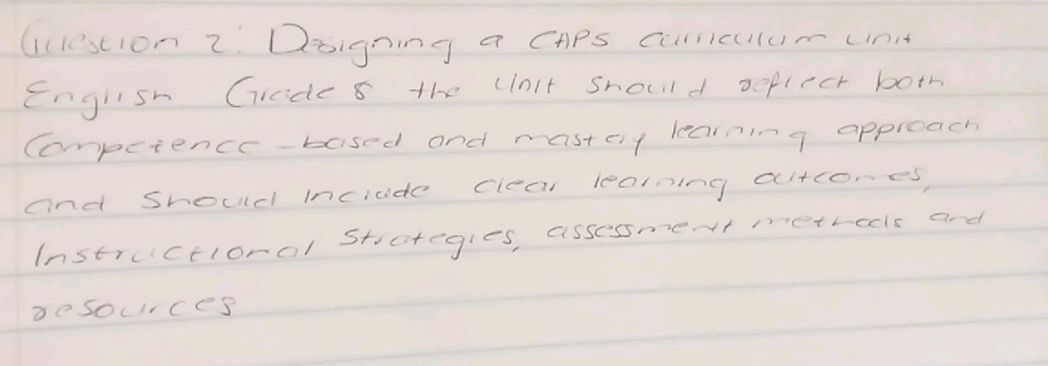 Question 2: Designing a CAPS curriculum unit
English Grade 8 the unit should reflect both
Competence-based and mastery learning approach
and should include clear learning outcomes,
Instructional strategies, assessment methods and
resources